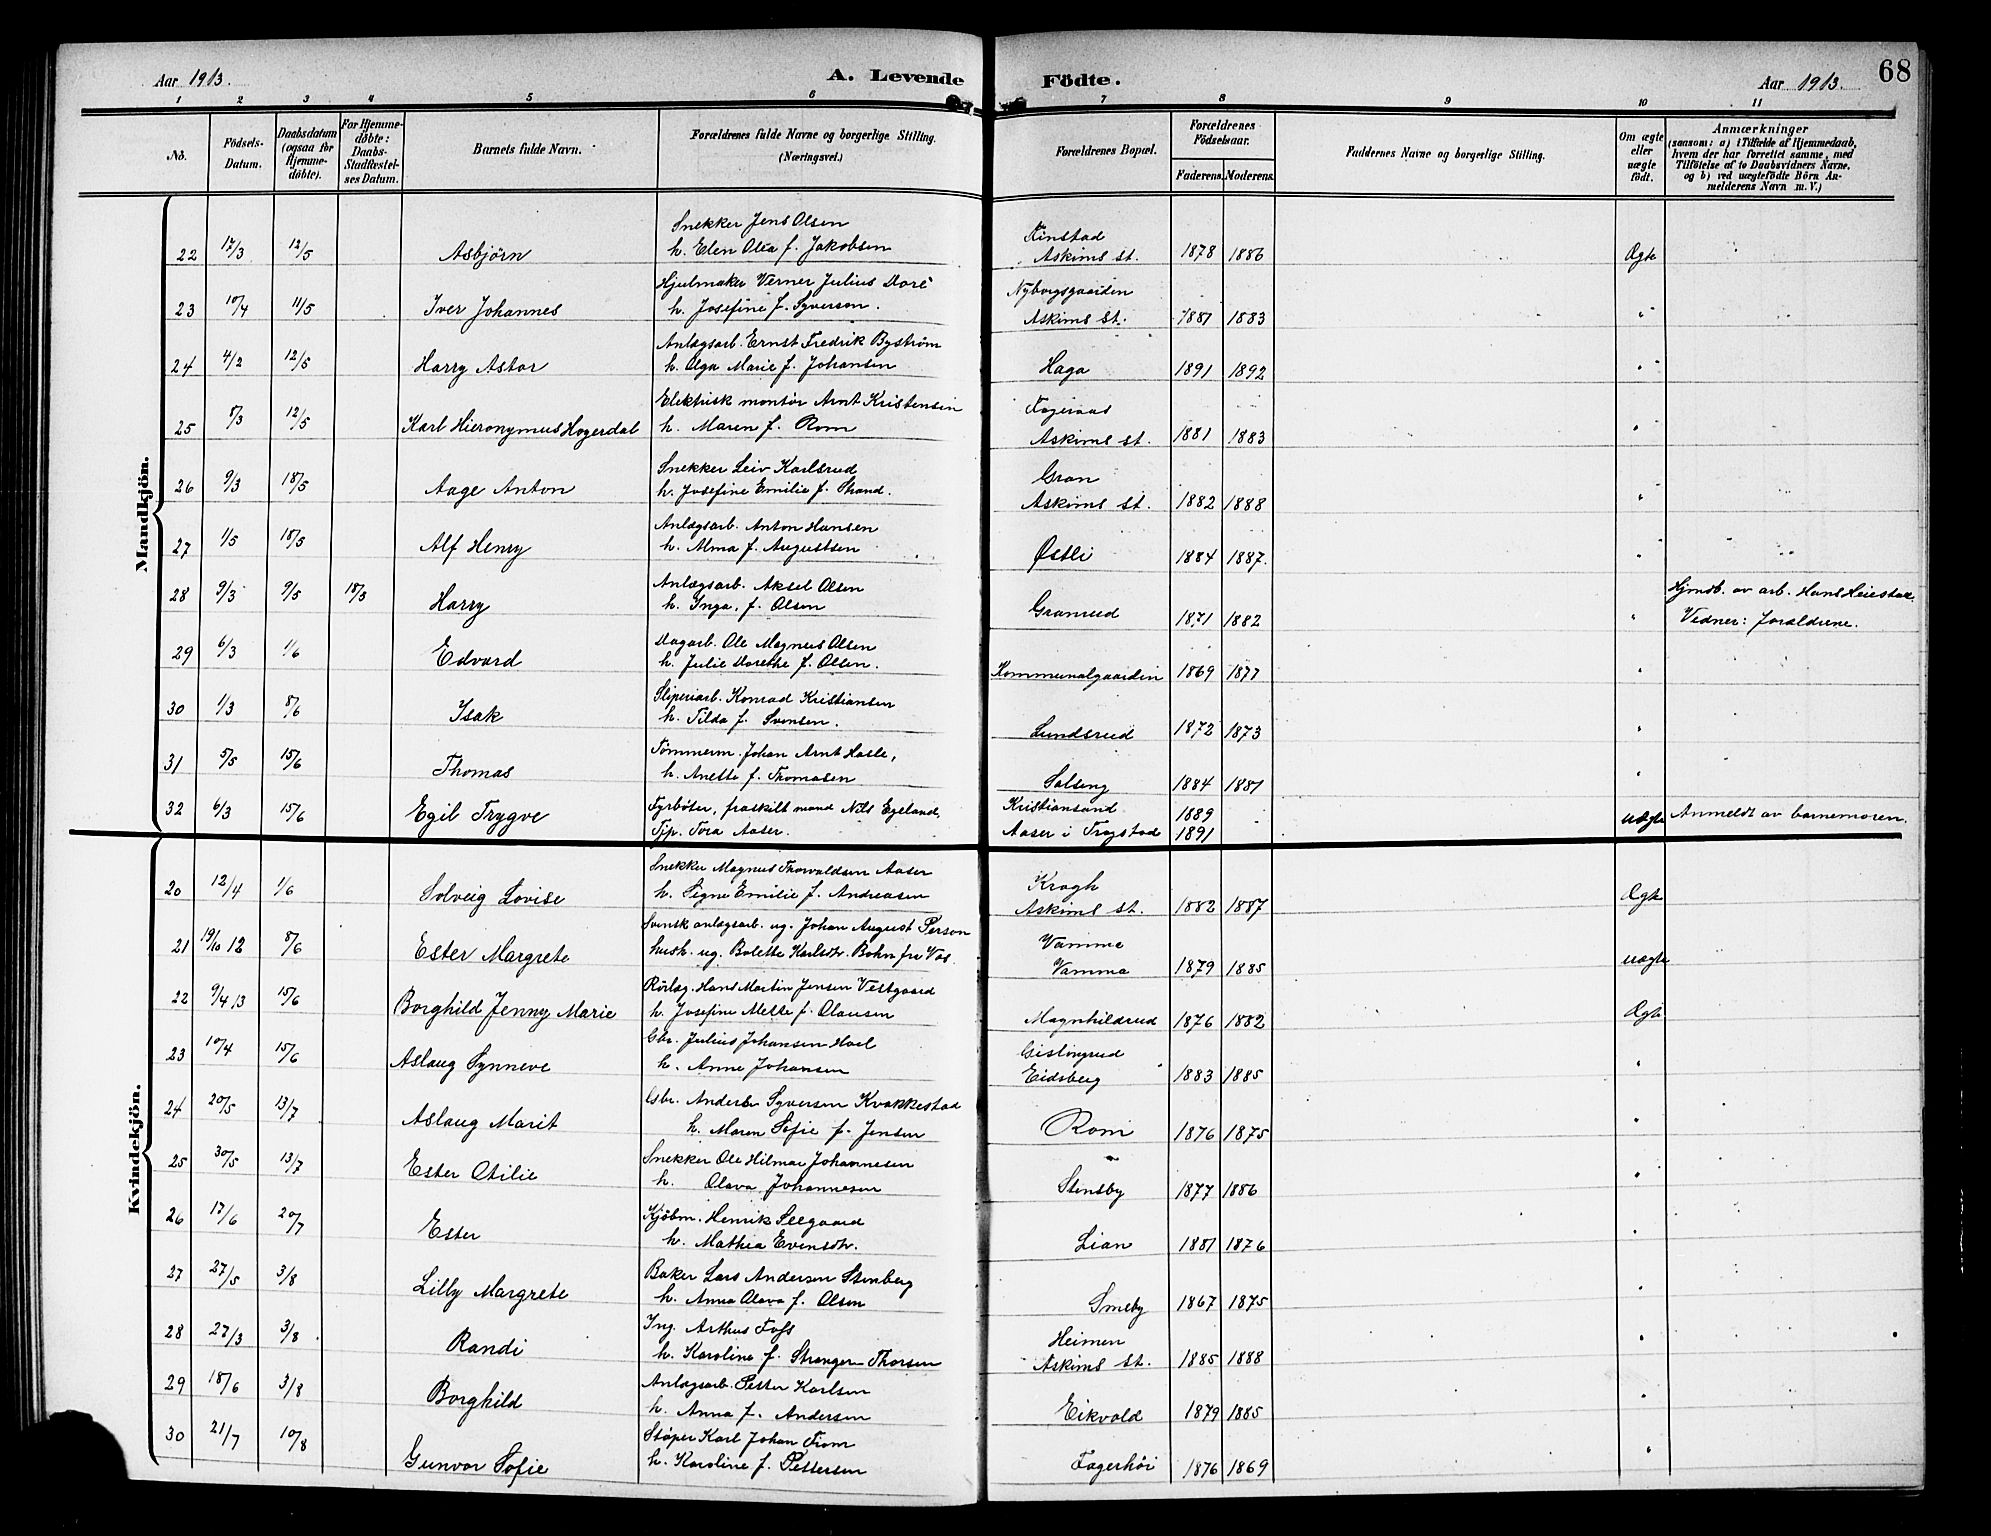 Aar 1913. A. Levende Födte. Aar 1913. 68
1 2 3 4 5 6 7 8 9 10 11
No. Födsels-Datum. Daabsdatum (ogsaa for Hjemme-döbte). For Hjemme-döbte: Daabs-Stadfæstel-ses Datum. Barnets fulde Navn. Forældrenes fulde Navne og borgerlige Stilling. (Næringsvei.) Forældrenes Bopæl. Forældrenes Födselsaar. Faderens. Moderens. Faddernes Navne og borgerlige Stilling. Om ægte eller uægte födt. Anmærkninger (saasom: a) i Tilfælde af Hjemmedaab, hvem der har forrettet samme, med Tilföielse af to Daabsvidners Navne, og b) ved uægtefödte Börn An-melderens Navn m. V.)
Mandkjön.
Snekker Jens Olsen Finstad
22 17/3 12/5 Asbjörn h. Elen Olea f. Jakobsen Askims st. 1878 1886 Ægte
Hjulmaker Verner Julius Doré Nyborgsgaarden
23 10/4 11/5 Iver Johannes h. Josefine f. Syversen. Askims st. 1881 1883 "
Anlægsarb. Ernst Fredrik Byström
24 4/2 12/5 Harry Astor h. Olga Marie f. Johansen Haga 1891 1892 "
Elektrisk montör Arnt Kristensen Fageraas
25 5/3 12/5 Karl Hieronymus Hogerdal h. Maren f. Rom Askims st. 1881 1883 "
Snekker Leiv Karlsrud Gran
26 9/3 18/5 Aage Anton h. Josefine Emilie f. Strand. Askims st. 1882 1888 "
Anlægsarb. Anton Hansen
27 1/5 18/5 Alf Henry h. Alma f. Augustsen Østli 1884 1887. "
Anlægsarb. Aksel Olsen Hjmdb. av arb. Hans
28 9/3 9/5 18/5 Harry h. Inga, f. Olsen Granrud 1871 1882 " Vidner: Forældrene.
Dagarb. Ole Magnus Olsen
29 6/3 1/6 Edvard h. Julie Dorethe f. Olsen. Kommunalgaarden 1869 1877 "
Sliperiarb. Konrad Kristiansen
30 1/3 8/6 Isak h. Tilda f. Svensen. Lundsrud 1872 1873 "
Tömmerm. Johan Arnt Hasle,
31 5/5 15/6 Thomas h. Anette f. Thomasen Solseng 1884 1881 "
Fyrböter, fraskilt mand Nils Egeland, Kristiansand 1889
32 6/3 15/6 Egil Trygve Tjp. Tora Aaser. Aaser i Trøgstad 1891 uægte Anmeldt av barnemoren.
Kvindekjön.
Snekker Magnus Thorvaldsen Aaser Kragh
20 12/4 1/6 Solveig Lovise h. Signe Emilie f. Andreasen Askims st. 1882 1887 Ægte
Svensk anlægsarb. ug. Johan August Person Vamma
21 19/10 12 8/6 Ester Margrete hush. ug. Bolette Karlsdtr. Bohn fra Vos. Vamma 1879 1885 uægte
Rörlæg. Hans Martin Jensen Vestgaard
22 9/4 13 15/6 Borghild Jenny Marie h. Josefine Alette f. Olausen Magnhildrud 1876 1882 Ægte
Gbr. Julius Johansen Hoel Gislingrud
23 10/4 15/6 Aslaug Synneve h. Anne Johansen Eidsberg 1883 1885 "
Gbr. Anders Syversen Kvakkestad
24 20/5 13/7 Aslaug Marit h. Maren Sofie f. Jensen Rom 1876 1875 "
Snekker Ole Hilmar Johannesen
25 30/5 13/7 Ester Otilie h. Olava Johannesen Stensby 1877 1886 "
Kjöbm. Henrik Seegaard
26 17/6 20/7 Ester h. Mathea Evensdtr. Lian 1881 1876 "
Baker Lars Andersen Stenberg
27 27/5 3/8 Lilly Margrete h. Anna Olava f. Olsen Smeby 1867 1875 "
Ing. Arthus Foss Heimen
28 27/3 3/8 Randi h. Karoline f. Stranger-Thorsen Askims st. 1885 1888 "
Anlægsarb. Petter Karlsen
29 18/6 3/8 Borghild h. Anna f. Andersen Eikvold 1879 1885 "
Stöper Karl Johan From
30 21/7 10/8 Gunvor Sofie h. Karoline f. Pettersen Fagerhöi 1876 1869 "